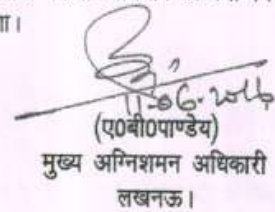 गा।
11-06-2014
(ए0बी0पाण्डेय)
मुख्य अग्निशमन अधिकारी
लखनऊ।